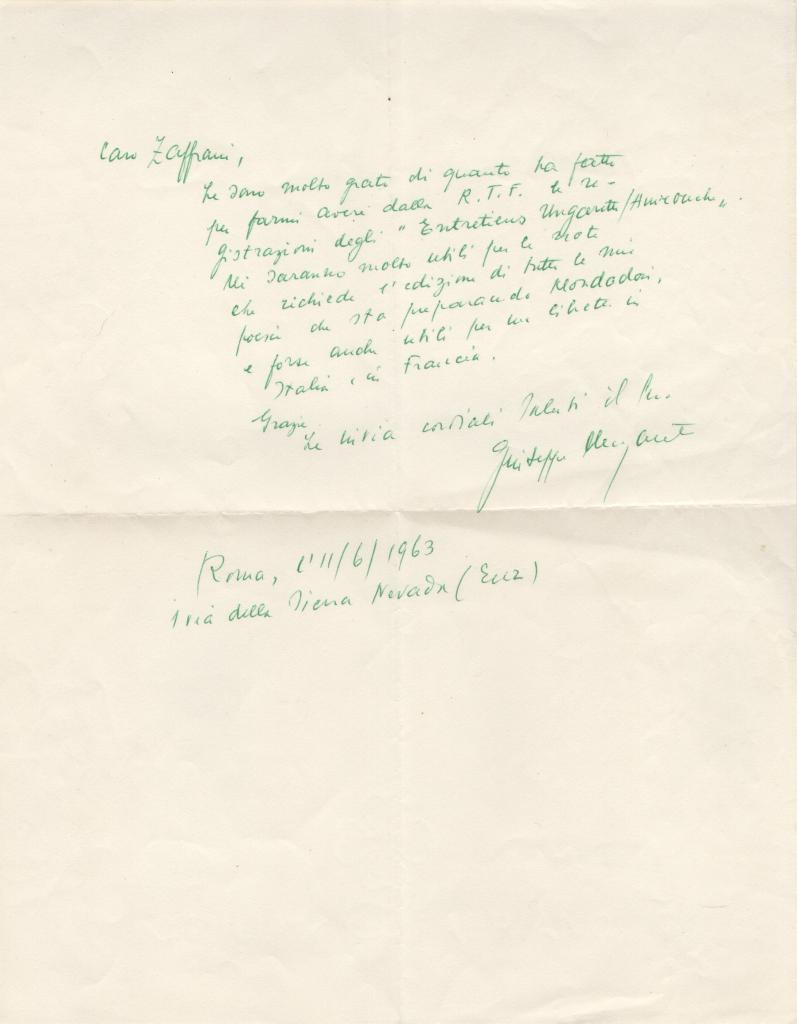 Caro Zaffrani,
Le sono molto grato di quanto ha fatto
per farmi avere dalla R.T.F. le re-
gistrazioni degli "Entretiens Ungaretti/Amrouche".
Mi saranno molto utili per le note
che richiede l'edizione di tutte le mie
poesie che sta preparando Mondadori,
e forse anche utili per un libretto in
Italia e in Francia.
Grazie
Le invia cordiali saluti il Suo
Giuseppe Ungaretti
Roma, l'11/6/1963
1 via della Sierra Nevada (Eur)